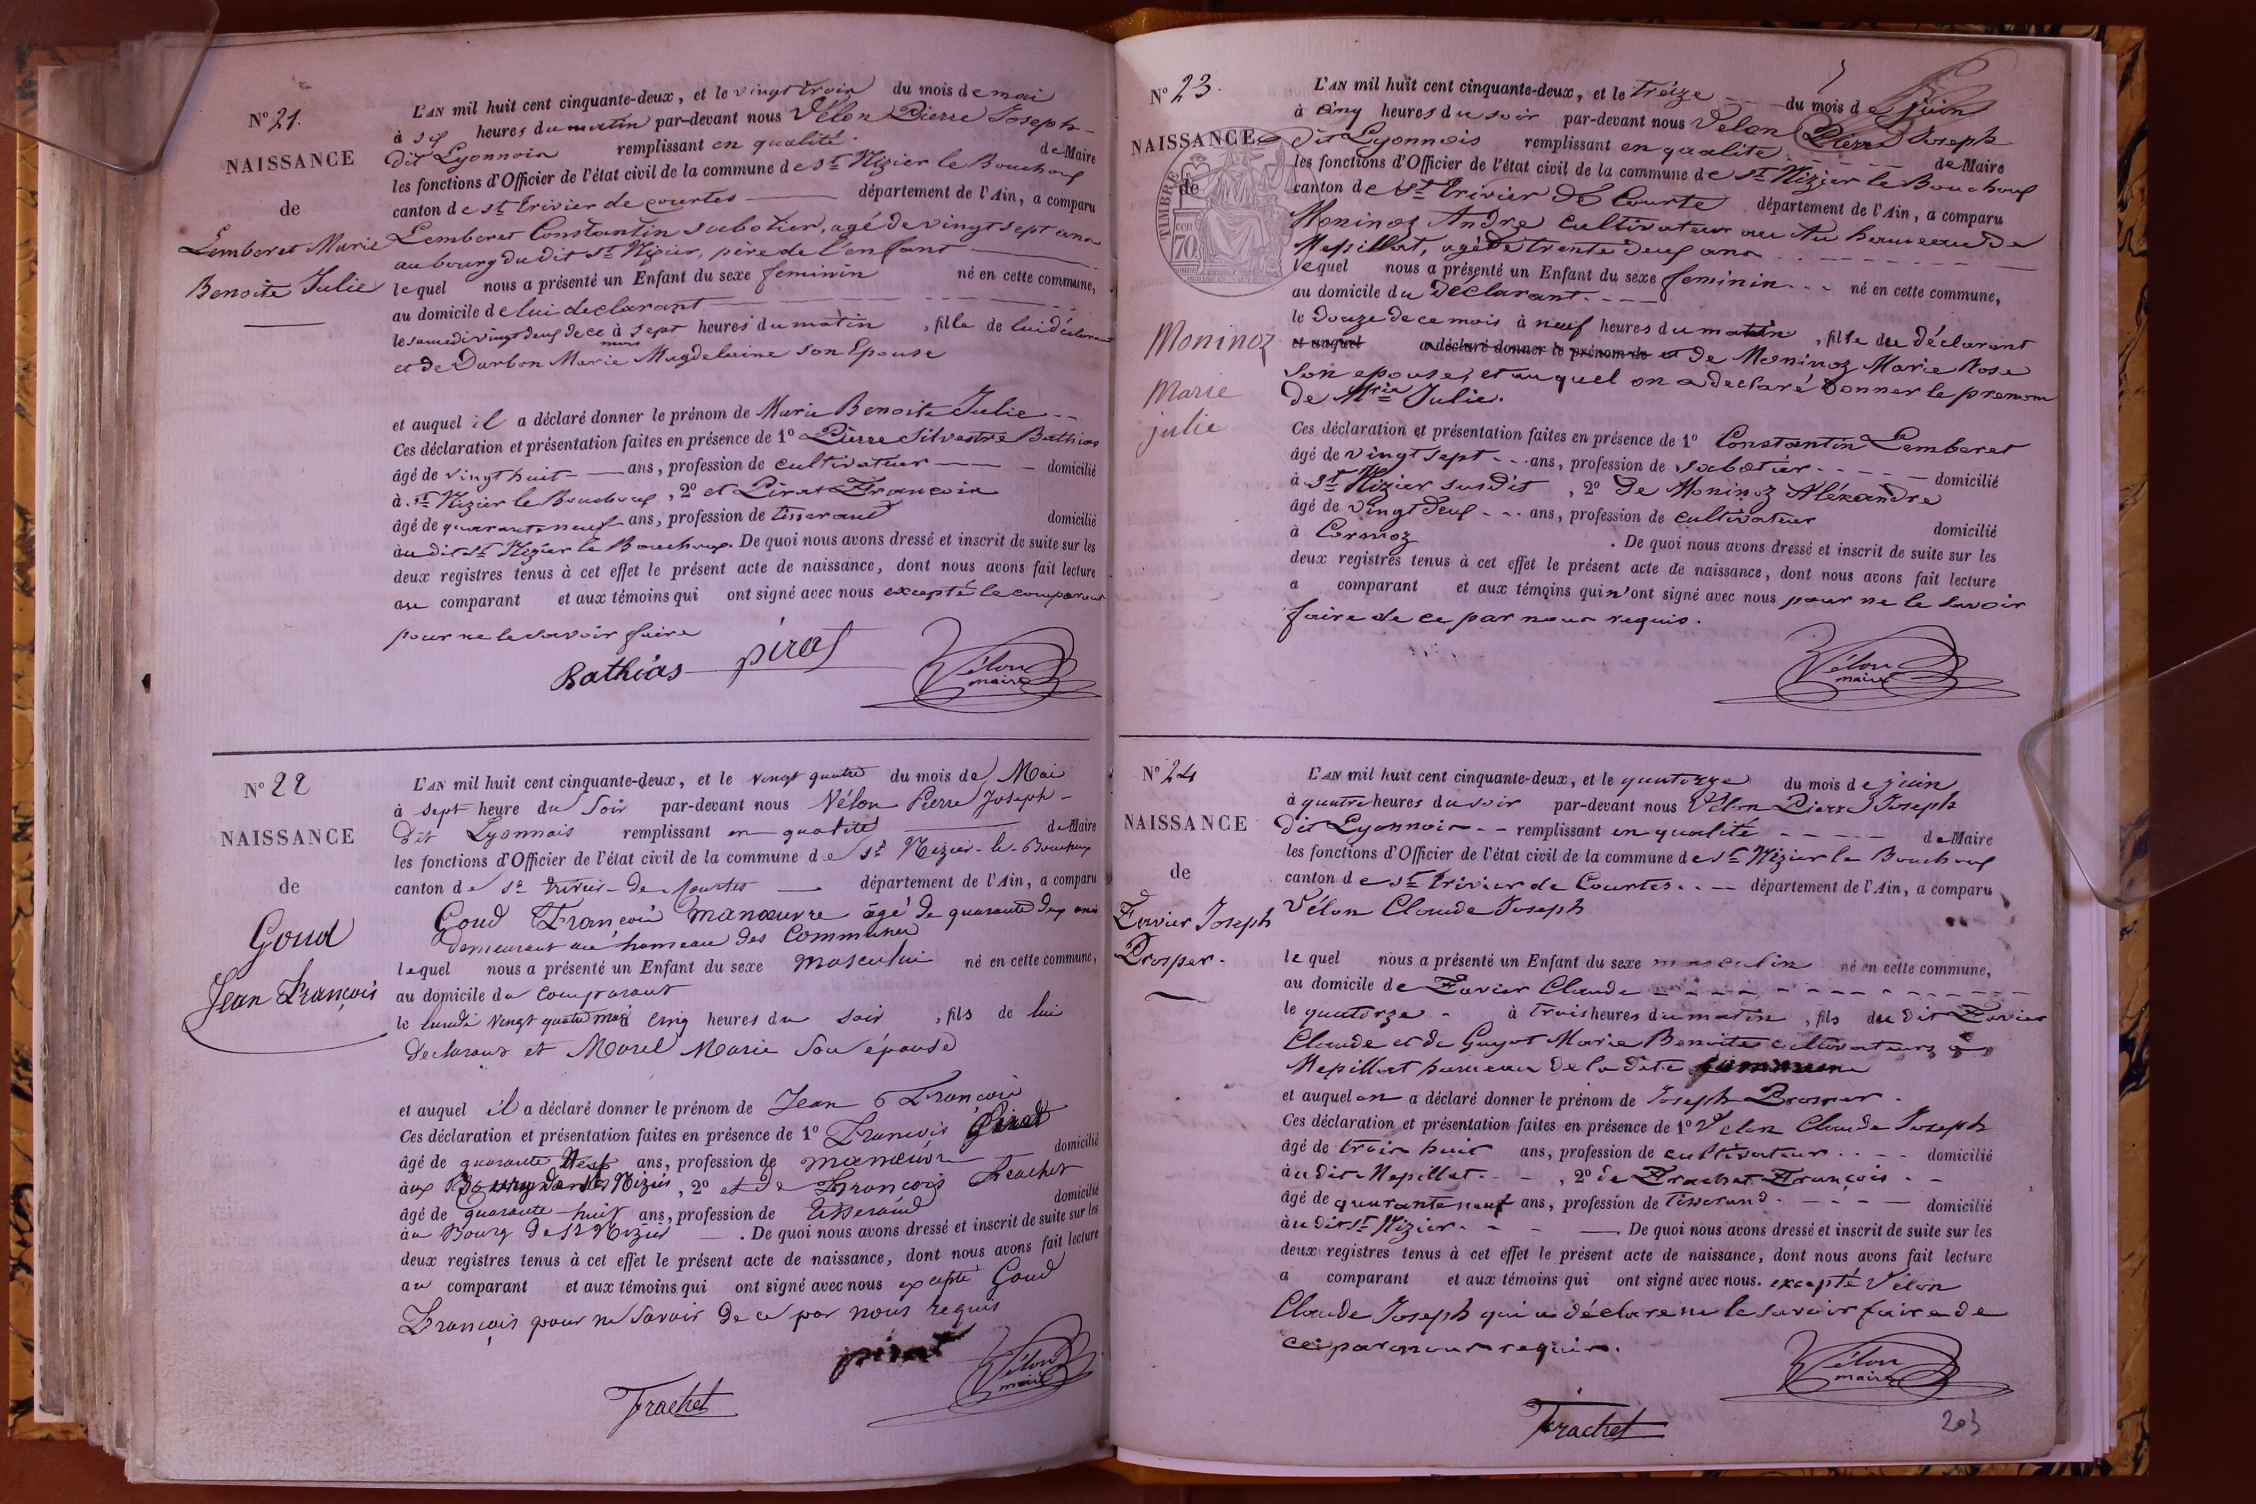 N° 21.
NAISSANCE
de
Lemberet Marie
Benoite Julie
L'AN mil huit cent cinquante-deux, et le vingt trois du mois de mai
à six heures du matin par-devant nous Vélon Pierre Joseph
dit Lyonnois remplissant en qualité de Maire
les fonctions d'Officier de l'état civil de la commune de St Nizier le Bouchoux
canton de St Trivier de courtes département de l'Ain, a comparu
Lemberet Constantin sabotier, agé de vingt sept ans
au bourg du dit St Nizier, père de l'enfant
lequel nous a présenté un Enfant du sexe feminin né en cette commune,
au domicile de lui declarant
le samedi vingt deux de ce mois à sept heures du matin, fille de lui déclarant
et de Darbon Marie Magdelaine son Epouse
et auquel il a déclaré donner le prénom de Marie Benoite Julie
Ces déclaration et présentation faites en présence de 1° Pierre Silvestre Bathias
âgé de vingt huit ans, profession de cultivateur domicilié
à St Nizier le Bouchoux, 2° et Pirat François
âgé de quarante neuf ans, profession de tisserand domicilié
au dit St Nizier le Bouchoux. De quoi nous avons dressé et inscrit de suite sur les
deux registres tenus à cet effet le présent acte de naissance, dont nous avons fait lecture
au comparant et aux témoins qui ont signé avec nous excepté le comparant
pour ne le savoir faire
Bathias pirat Vélon
maire
N° 22
NAISSANCE
de
Goud
Jean François
L'AN mil huit cent cinquante-deux, et le vingt quatre du mois de Mai
à sept heure du Soir par-devant nous Vélon Pierre Joseph
dit Lyonnais remplissant en qualité de Maire
les fonctions d'Officier de l'état civil de la commune de St Nizier-le-Bouchoux
canton de St Trivier-de-Courtes département de l'Ain, a comparu
Goud François manœuvre âgé de quarante deux ans
demeurant au hameau des Communes
lequel nous a présenté un Enfant du sexe masculin né en cette commune,
au domicile du comparant
le lundi vingt quatre mai à cinq heures du soir, fils de lui
déclarant et Morel Marie son épouse
et auquel il a déclaré donner le prénom de Jean François
Ces déclaration et présentation faites en présence de 1° François Pirat
âgé de quarante neuf ans, profession de manœuvre domicilié
Bourg de St Nizier, 2° et de François Frachet
âgé de quarante huit ans, profession de tisserand domicilié
au Bourg de St Nizier. De quoi nous avons dressé et inscrit de suite sur les
deux registres tenus à cet effet le présent acte de naissance, dont nous avons fait lecture
au comparant et aux témoins qui ont signé avec nous excepté Goud
François pour ne savoir de ce par nous requis
pirat
Vélon
maire
Frachet
N° 23.
NAISSANCE
de
TIMBRE
70
Moninoz
Marie
julie
L'AN mil huit cent cinquante-deux, et le treize du mois de juin
à cinq heures du soir par-devant nous Vélon Pierre Joseph
dit Lyonnois remplissant en qualité de Maire
les fonctions d'Officier de l'état civil de la commune de St Nizier le Bouchoux
canton de St Trivier de Courte département de l'Ain, a comparu
Moninoz André cultivateur au du hameau de
Mepillat, agé de trente deux ans
lequel nous a présenté un Enfant du sexe feminin né en cette commune,
au domicile du déclarant
le douze de ce mois à neuf heures du matin, fille du déclarant
et auquel a déclaré donner le prénom de et de Moninoz Marie Rose
son epouse, et auquel on a declaré donner le prenom
de Mrie Julie.
Ces déclaration et présentation faites en présence de 1° Constantin Lemberet
âgé de vingt sept ans, profession de sabotier domicilié
à St Nizier susdit, 2° de Moninoz Aléxandre
âgé de vingt deux ans, profession de cultivateur domicilié
à Cormoz. De quoi nous avons dressé et inscrit de suite sur les
deux registres tenus à cet effet le présent acte de naissance, dont nous avons fait lecture
a comparant et aux témoins qui n'ont signé avec nous pour ne le savoir
faire de ce par nous requis.
Vélon
maire
N° 24
NAISSANCE
de
Favier Joseph
Prosper.
L'AN mil huit cent cinquante-deux, et le quatorze du mois de juin
à quatre heures du soir par-devant nous Vélon Pierre Joseph
dit Lyonnois remplissant en qualité de Maire
les fonctions d'Officier de l'état civil de la commune de St Nizier le Bouchoux
canton de St Trivier de Courtes département de l'Ain, a comparu
Vélon Claude Joseph
lequel nous a présenté un Enfant du sexe masculin né en cette commune,
au domicile de Favier Claude
le quatorze à trois heures du matin, fils du dit Favier
Claude et de Guyot Marie Benoite cultivateurs à
Mepillat hameau de la dite commune
et auquel on a déclaré donner le prénom de Joseph Prosper.
Ces déclaration et présentation faites en présence de 1° Vélon Claude Joseph
âgé de trois huit ans, profession de cultivateur domicilié
au dit Mepillat, 2° de Frachet François
âgé de quarante neuf ans, profession de tisserand domicilié
au dit St Nizier. De quoi nous avons dressé et inscrit de suite sur les
deux registres tenus à cet effet le présent acte de naissance, dont nous avons fait lecture
a comparant et aux témoins qui ont signé avec nous. excepté Vélon
Claude Joseph qui a déclaré ne le savoir faire de
ce par nous requis.
Vélon
maire
Frachet
203